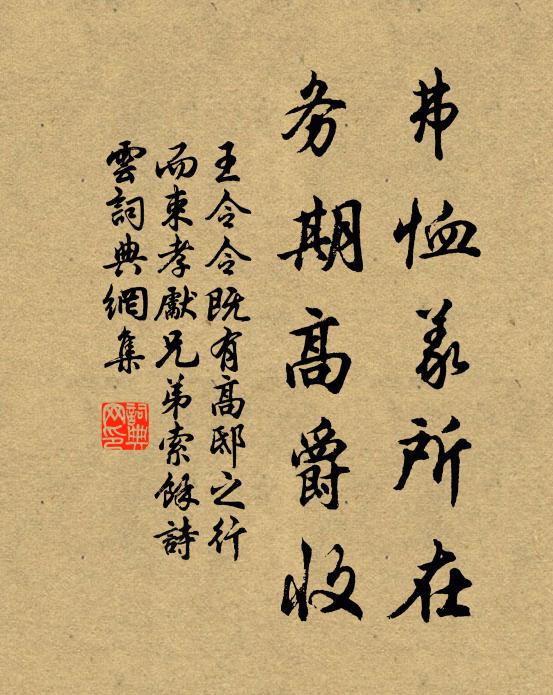 弗恤義所在
务期高爵收
王令令既有高邸之行
而東孝獻兄弟索餘詩
雲詞典網集
詞典网印